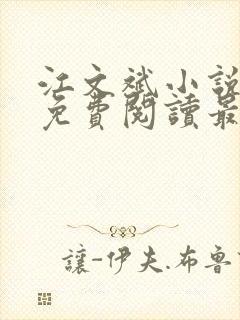 江文斌小說
免費閱讀最
讓-伊夫.布魯